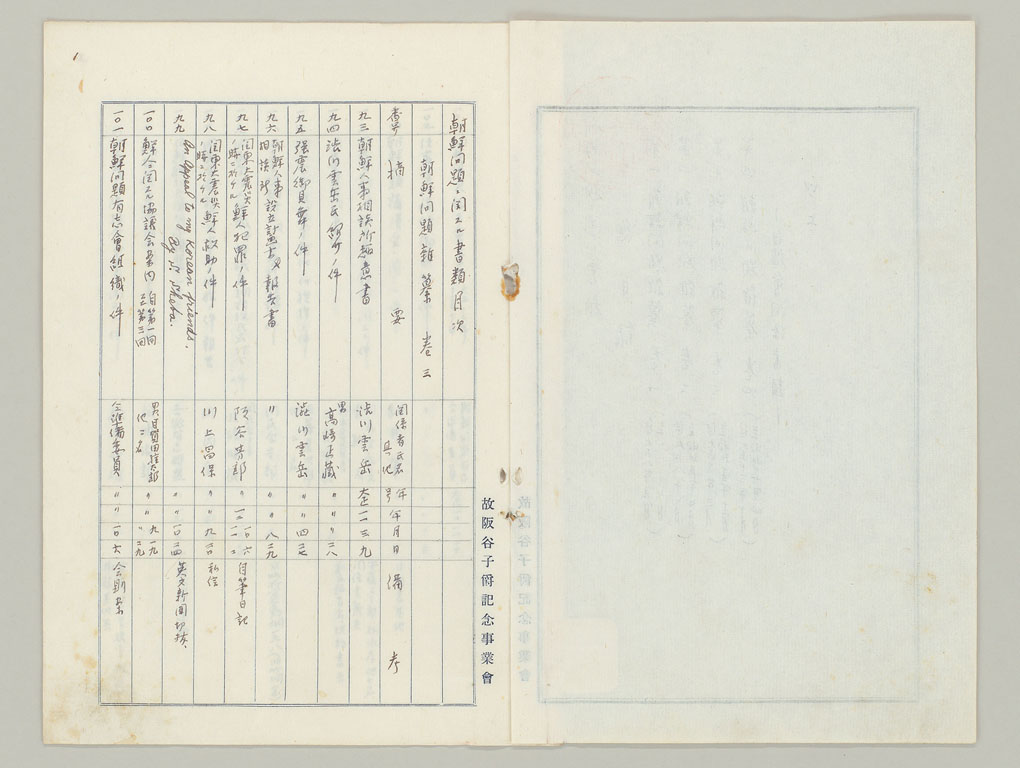 朝鮮問題ニ関スル書類目次
朝鮮問題雑纂 巻三
番号 摘要 関係者氏名 其他 年号 年 月 日 備考
九三 朝鮮人事相談所趣意書 渋川雲岳 大正 一二 三 九
九四 渋川雲岳氏紹介ノ件 男 高崎 〃 〃 〃 二八
九五 強震御見舞ノ件 渋川雲岳 〃 〃 四 二七
九六 朝鮮人事相談所設立 報告書 〃 〃 〃 八 二九
九七 関東大震災ノ際ニ於ケル鮮人犯罪ノ件 阪谷芳郎 〃 自筆日記
九八 関東大震災ノ際ニ於ケル鮮人救助ノ件 川上 〃 〃 九 二〇 私信
九九 An Appeal to my Korean friends.
By S. Sheba.
〃 〃 一〇 二四 英文新聞切抜
一〇〇 鮮人ニ関スル協議会案内 自第一回 至第三回 男 目賀田種太郎 他二名 〃 〃 九 一九 〃 二九
一〇一 朝鮮問題有志會組織ノ件 仝準備委員 〃 〃 一〇 六 会則案
故阪谷子爵記念事業會
1